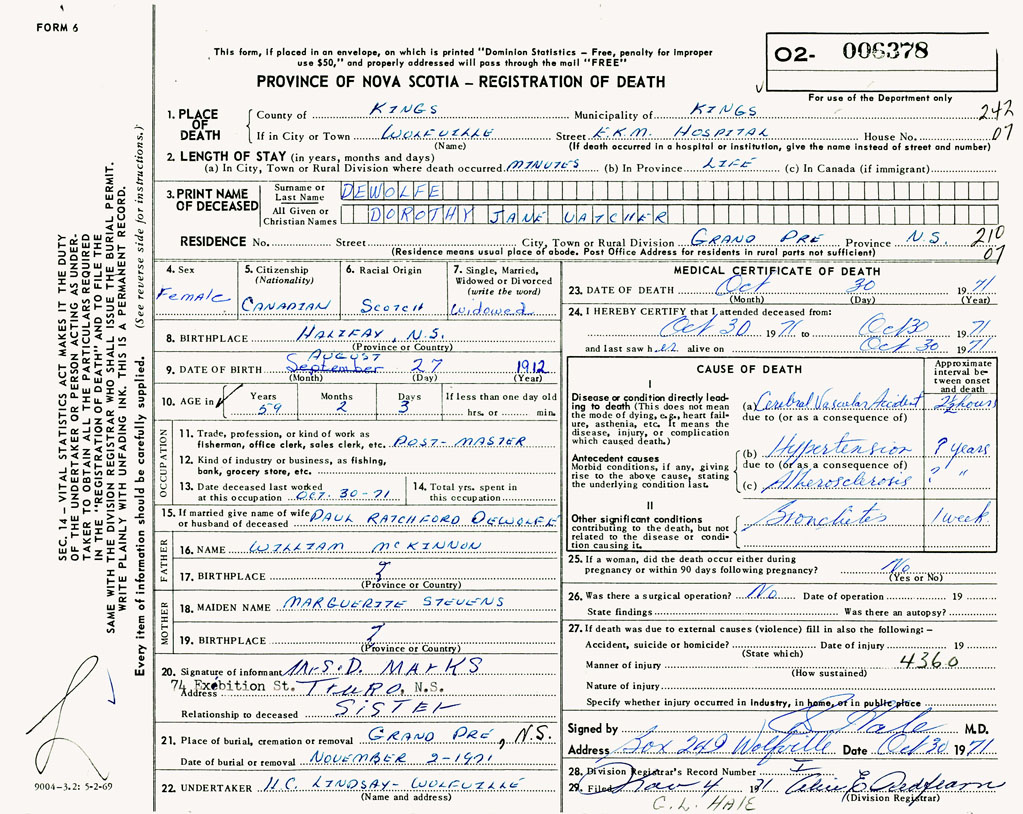 FORM 6
This form, if placed in an envelope, on which is printed "Dominion Statistics – Free, penalty for improper
use $50," and properly addressed will pass through the mail "FREE"
PROVINCE OF NOVA SCOTIA – REGISTRATION OF DEATH
O2- 006378
For use of the Department only
1. PLACE OF DEATH
County of KINGS Municipality of KINGS 242
If in City or Town WOLFVILLE Street E.K.M. HOSPITAL House No. 07
(Name) (If death occurred in a hospital or institution, give the name instead of street and number)
2. LENGTH OF STAY (in years, months and days)
(a) In City, Town or Rural Division where death occurred MINUTES (b) In Province LIFE (c) In Canada (if immigrant)
3. PRINT NAME OF DECEASED
Surname or Last Name DEWOLFE
All Given or Christian Names DOROTHY JANE VATCHER
RESIDENCE No. Street City, Town or Rural Division GRAND PRE Province N.S. 210
(Residence means usual place of abode. Post Office Address for residents in rural parts not sufficient) 07
4. Sex
Female
5. Citizenship
(Nationality)
CANADIAN
6. Racial Origin
SCOTCH
7. Single, Married,
Widowed or Divorced
(write the word)
Widowed
8. BIRTHPLACE HALIFAX, N.S.
(Province or Country)
AUGUST
9. DATE OF BIRTH September 27 1912
(Month) (Day) (Year)
10. AGE in Years Months Days If less than one day old
59 2 3 hrs. or min.
OCCUPATION
11. Trade, profession, or kind of work as
fisherman, office clerk, sales clerk, etc. POST-MASTER
12. Kind of industry or business, as fishing,
bank, grocery store, etc.
13. Date deceased last worked
at this occupation OCT. 30-71
14. Total yrs. spent in
this occupation
15. If married give name of wife
or husband of deceased PAUL RATCHFORD DEWOLFE
FATHER
16. NAME WILLIAM McKINNON
17. BIRTHPLACE ?
(Province or Country)
MOTHER
18. MAIDEN NAME MARGUERITE STEVENS
19. BIRTHPLACE ?
(Province or Country)
20. Signature of informant Mrs. D. MARKS
74 Exebition St. TRURO, N.S.
Address
Relationship to deceased SISTER
21. Place of burial, cremation or removal GRAND PRE, N.S.
Date of burial or removal NOVEMBER 2-1971
22. UNDERTAKER H.C. LINDSAY-WOLFVILLE
(Name and address)
MEDICAL CERTIFICATE OF DEATH
23. DATE OF DEATH Oct 30 1971
(Month) (Day) (Year)
24. I HEREBY CERTIFY that I attended deceased from:
Oct 30 1971 to Oct 30 1971
and last saw her alive on Oct 30 1971
CAUSE OF DEATH
Approximate
interval be-
tween onset
and death
I
Disease or condition directly lead-
ing to death (This does not
mean the mode of dying, e.g., heart fail-
ure, asthenia, etc. It means the
disease, injury, or complication
which caused death.)
(a) Cerebral Vascular Accident 2½ hours
due to (or as a consequence of)
Antecedent causes
Morbid conditions, if any, giving
rise to the above cause, stating
the underlying condition last.
(b) Hypertension ? years
due to (or as a consequence of)
(c) Atherosclerosis ? "
II
Other significant conditions
contributing to the death, but not
related to the disease or condi-
tion causing it.
Bronchitis 1 week
25. If a woman, did the death occur either during
pregnancy or within 90 days following pregnancy? No
(Yes or No)
26. Was there a surgical operation? No Date of operation 19
State findings Was there an autopsy?
27. If death was due to external causes (violence) fill in also the following: –
Accident, suicide or homicide? Date of injury 19
(State which)
Manner of injury 4360
(How sustained)
Nature of injury
Specify whether injury occurred in industry, in home, or in public place
Signed by Hale M.D.
Address Box 249 Wolfville Date Oct 30 1971
28. Division Registrar's Record Number
29. Filed Nov 4 1971
(Division Registrar)
G.L. HALE
SEC. 14 – VITAL STATISTICS ACT MAKES IT THE DUTY
OF THE UNDERTAKER OR PERSON ACTING AS UNDER-
TAKER TO OBTAIN ALL THE PARTICULARS REQUIRED
IN THE "REGISTRATION OF DEATH" AND TO FILE THE
SAME WITH THE DIVISION REGISTRAR WHO SHALL ISSUE THE BURIAL PERMIT.
WRITE PLAINLY WITH UNFADING INK. THIS IS A PERMANENT RECORD.
Every item of information should be carefully supplied. (See reverse side for instructions.)
9004-3.2: 5-2-69